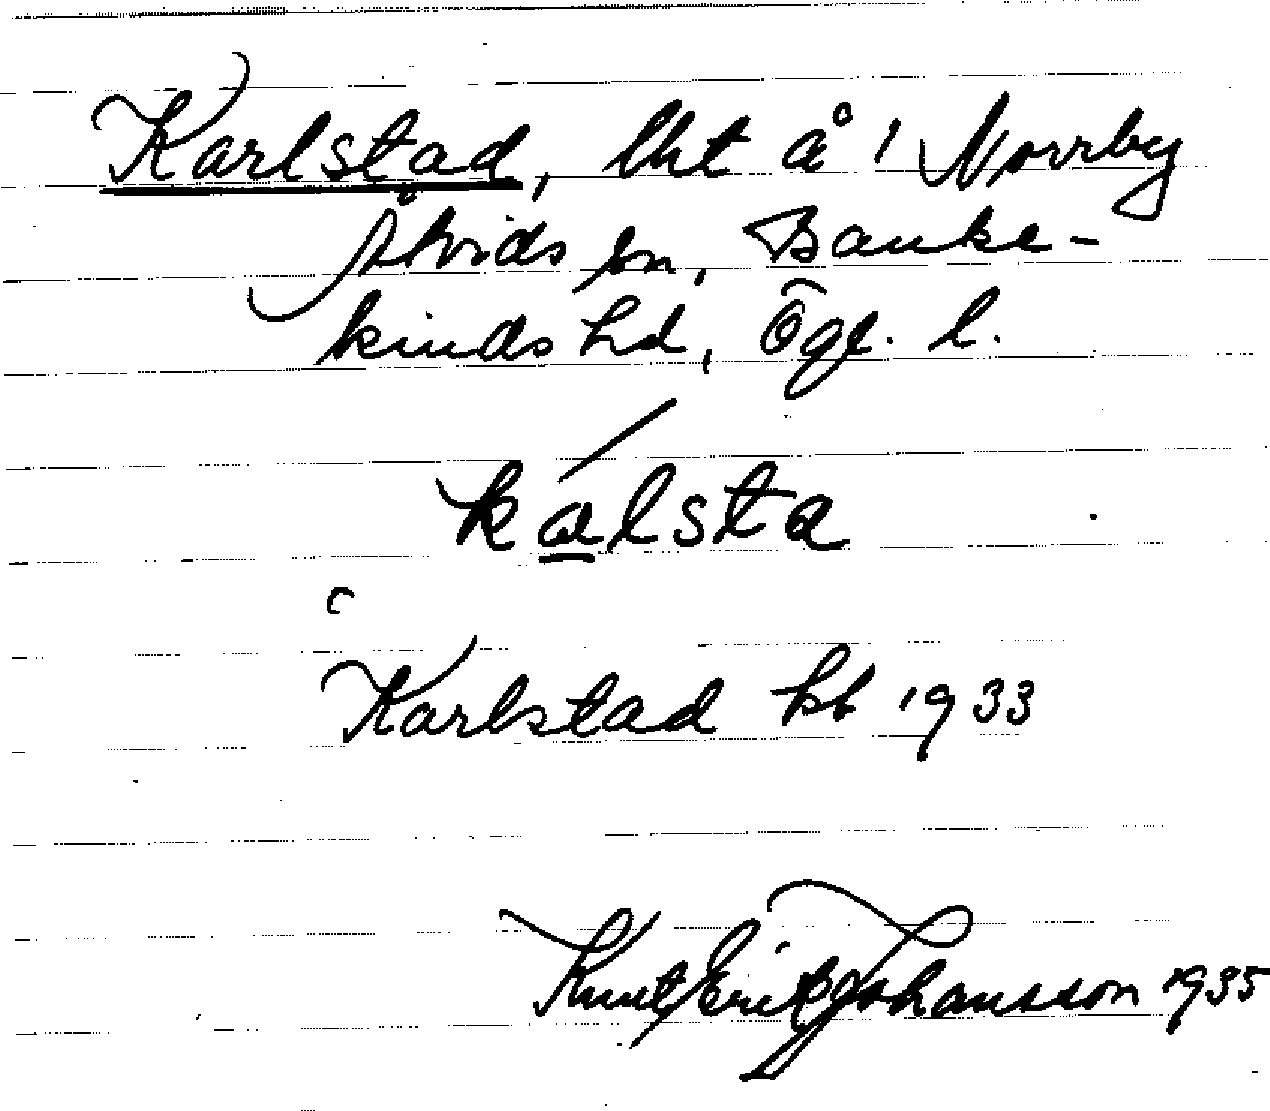 Karlstad, lht å 1 Norrby
Åtvids sn, Banke-
kinds hd, Ögl. l.
kálsta
Karlstad kb 1933
Knut Erik Johansson 1935